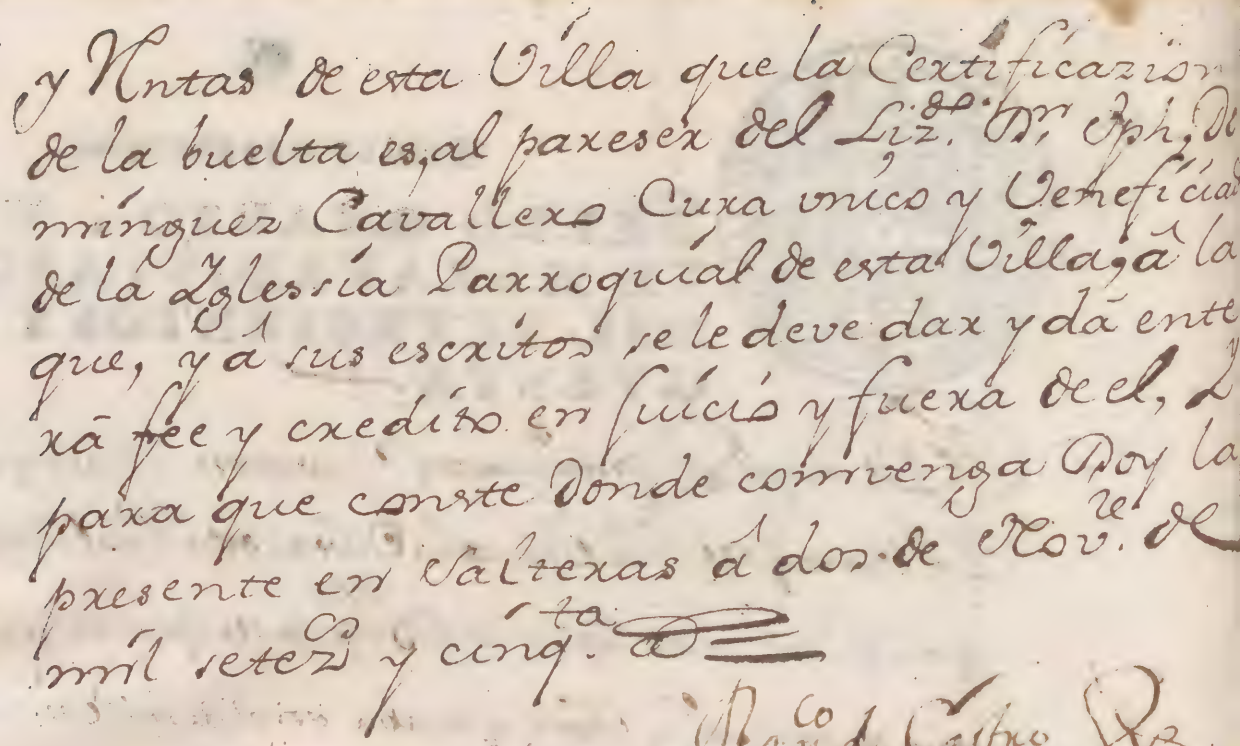 y Rentas de esta Villa que la Certificazion
de la buelta es, al pareser del Lizdo. Dn Jph, Do
minguez Cavallero Cura vnico y Veneficiad
de la Yglessia Parroquial de esta Villa, â la
que, y â sus escritos se le deve dar y dâ ente
râ fee y credito en Juicio y fuera de el, Y
para que conste donde comvenga Doy la
presente en Salteras â dos de Novre. de
mil setezs y cinqta.
Franco de Castro